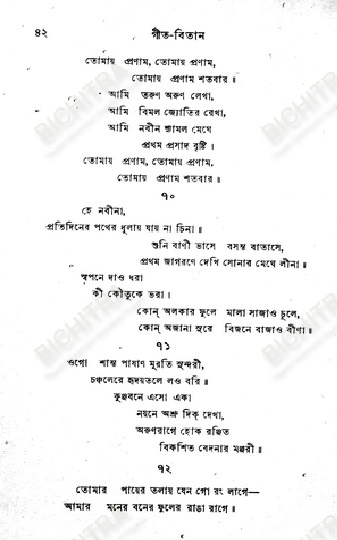 ৪২ গীত-বিতান
তোমায় প্রণাম, তোমায় প্রণাম,
তোমায় প্রণাম শতবার॥
আমি তরুণ অরুণ লেখা,
আমি বিমল জ্যোতির রেখা,
আমি নবীন শ্যামল মেঘে
প্রথম প্রসাদ বৃষ্টি।
তোমায় প্রণাম, তোমায় প্রণাম,
তোমায় প্রণাম শতবার॥
৭০
হে নবীনা,
প্রতিদিনের পথের ধূলায় যায় না চিনা॥
শুনি বাণী ভাসে বসন্ত বাতাসে,
প্রথম জাগরণে দেখি সোনার মেঘে লীনা॥
স্বপনে দাও ধরা
কী কৌতুকে ভরা।
কোন্ অলকার ফুলে মালা সাজাও চুলে,
কোন্ অজানা সুরে বিজনে বাজাও বীণা॥
৭১
ওগো শান্ত পাষাণ মূরতি সুন্দরী,
চঞ্চলেরে হৃদয়তলে লও বরি॥
কুঞ্জবনে এসো একা
নয়নে অশ্রু দিক্ দেখা,
অরুণরাগে হোক রঞ্জিত
বিকশিত বেদনার মঞ্জরী॥
৭২
তোমার পায়ের তলায় যেন গো রং লাগে—
আমার মনের বনের ফুলের রাঙা রাগে॥
BICHITRA